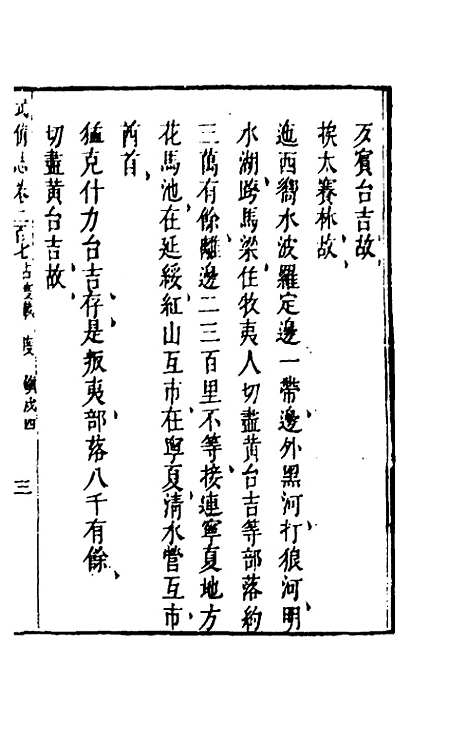 歹賓台吉故
挨太賽林故
迤西嚮水波羅定邊一帶邊外黑河打狼河明
水湖跨馬梁住牧夷人切盡黃台吉等部落約
三萬有餘離邊二三百里不等接連寧夏地方
花馬池在延綏紅山互市在寧夏清水營互市
酋首
猛克什力台吉存是叛夷部落八千有餘
切盡黃台吉故
武備志卷二百七 占度載 度 鎮戍四 三